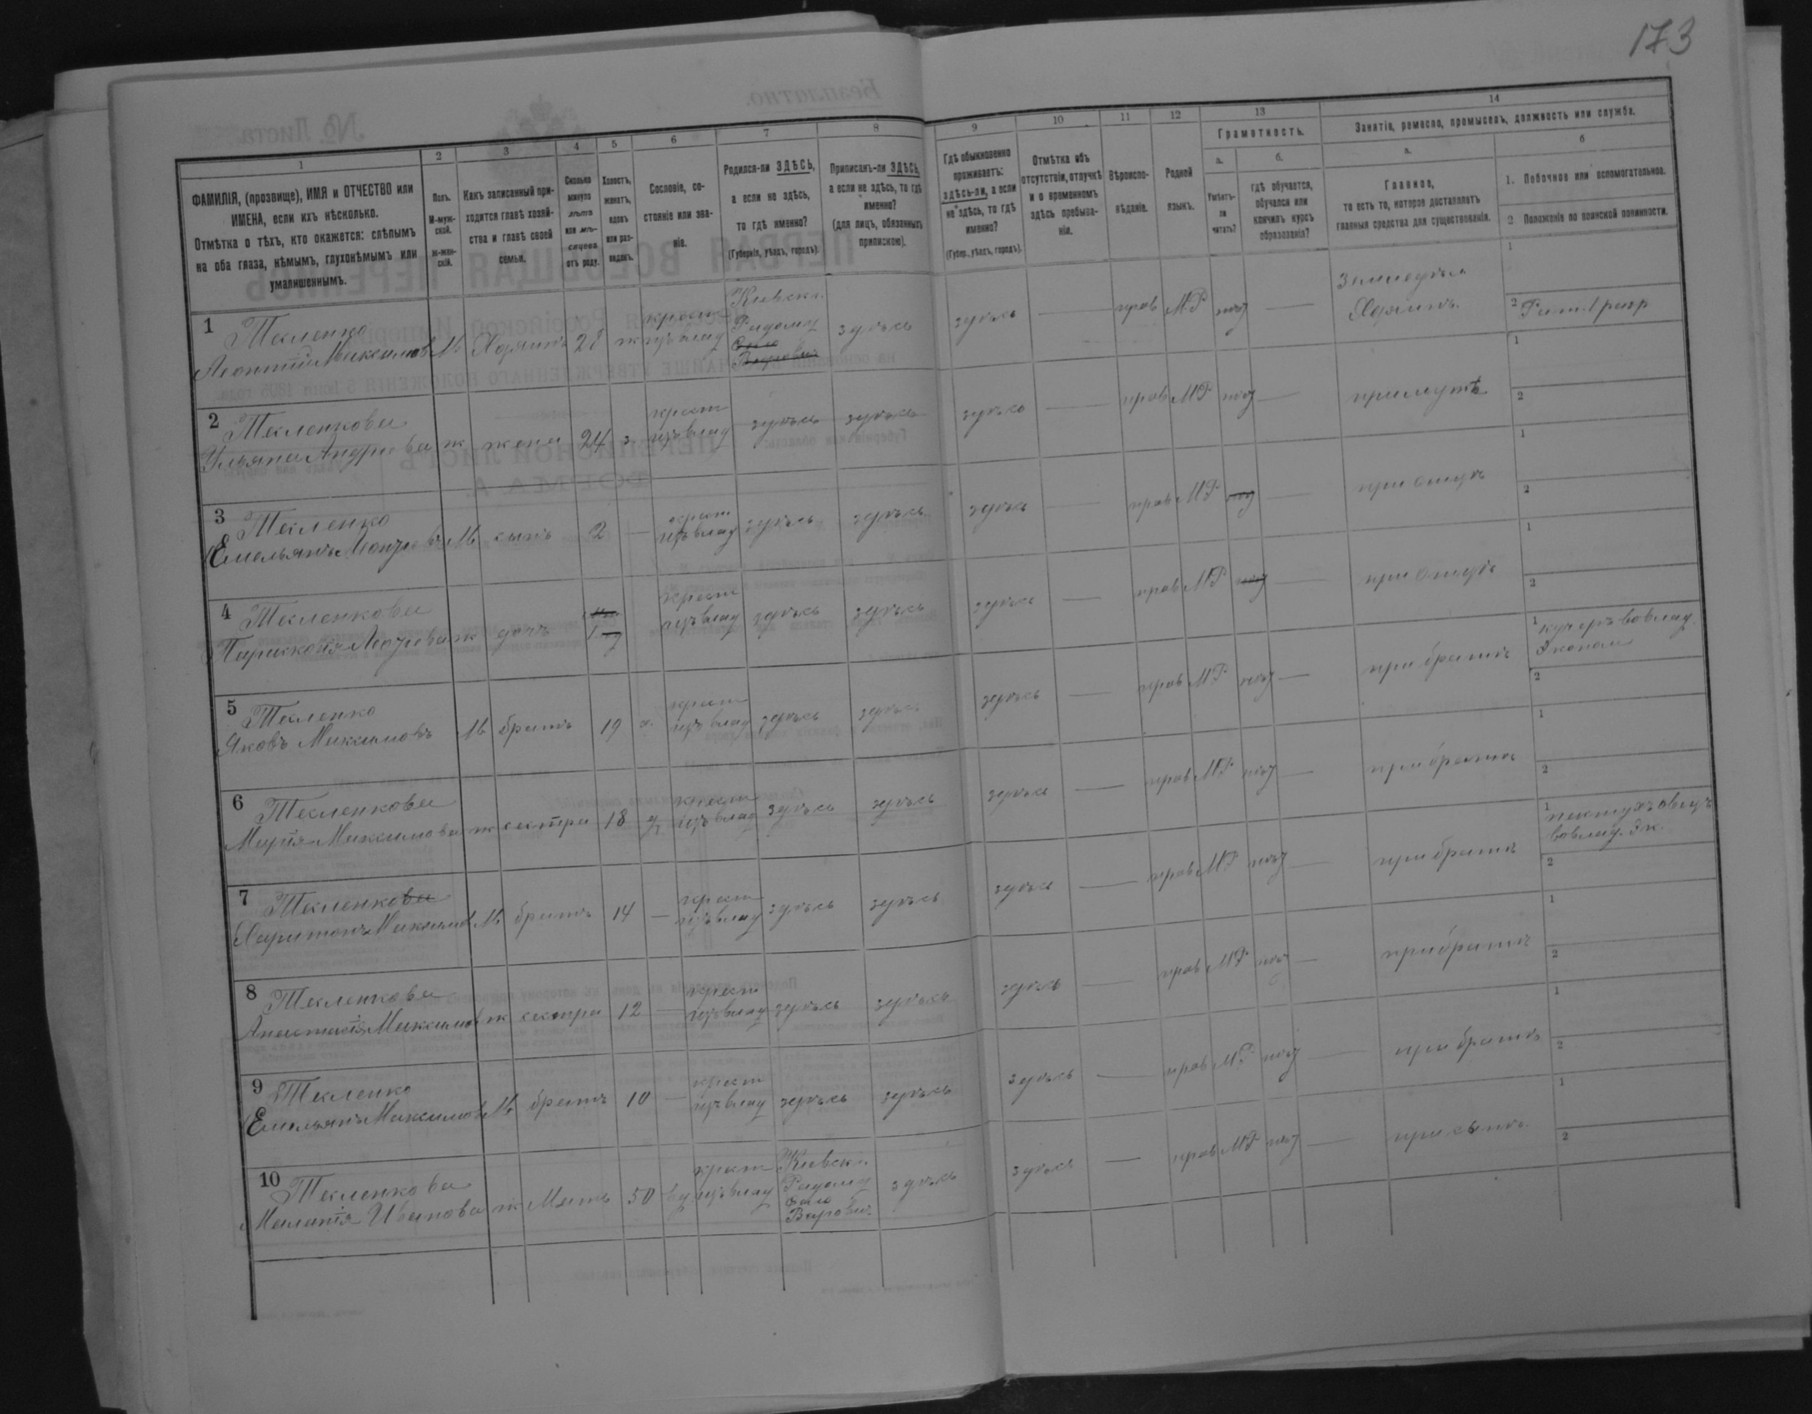 173
1
2
3
4
5
6
7
8
9
10
11
12
13
14
ФАМИЛІЯ, (прозвище), ИМЯ и ОТЧЕСТВО или
ИМЕНА, если ихъ нѣсколько.
Отмѣтка о тѣхъ, кто окажется: слѣпымъ
на оба глаза, нѣмымъ, глухонѣмымъ или
умалишеннымъ.
Полъ.
М-муж-
ской.
Ж-жен-
скій.
Какъ записанный при-
ходится главѣ хозяй-
ства и главѣ своей
семьи.
Сколько
минуло
лѣтъ
или мѣ-
сяцевъ
отъ роду.
Холостъ,
женатъ,
вдовъ
или раз-
веденъ.
Сословіе, со-
стояніе или зва-
ніе.
Родился-ли ЗДѢСЬ,
а если не здѣсь,
то гдѣ именно?
(Губернія, уѣздъ, городъ).
Приписанъ-ли ЗДѢСЬ,
а если не здѣсь, то гдѣ
именно?
(для лицъ, обязанныхъ
припискою).
Гдѣ обыкновенно
проживаетъ:
здѣсь-ли, а если
не здѣсь, то гдѣ
именно?
(Губер., уѣздъ, городъ).
Отмѣтка объ
отсутствіи, отлучкѣ
и о временномъ
здѣсь пребыва-
ніи.
Вѣроиспо-
вѣданіе.
Родной
языкъ.
Грамотность.
а.
Умѣетъ-
ли
читать?
б.
Гдѣ обучается,
обучался или
кончилъ курсъ
образованія?
Занятіе, ремесло, промыселъ, должность или служба.
а.
Главное,
то есть то, которое доставляетъ
главныя средства для существованія.
б
1. Побочное или вспомогательное.
2. Положеніе по воинской повинности.
1
Тесленко
Леонтій Максимов М Хозяинъ 28 ж
крест
изъ влад
Кіевск.
Радомы
Село
здѣсь здѣсь — прав МР нѣт —
Хозяинъ
1
2
2
Тесленкова
Ульяна Андріева ж жена 24 з
крест
изъ влад
здѣсь здѣсь здѣсь — прав МР нѣт —
при мужѣ
1
2
3
Тесленко
Емельянъ М сынъ 2 —
крест
изъ влад
здѣсь здѣсь здѣсь — прав МР нѣт —
при отцѣ
1
2
4
Тесленкова
ж дочь 1
крест
изъ влад
здѣсь здѣсь здѣсь — прав МР нѣт —
при отцѣ
1
2
5
Тесленко
Яковъ Максимовъ М братъ 19 х
крест
изъ влад
здѣсь здѣсь здѣсь — прав МР нѣт —
при братѣ
1 кучеръ в влад.
Эконом
2
6
Тесленкова
Марія Максимова ж сестра 18 д
крест
изъ влад
здѣсь здѣсь здѣсь — прав МР нѣт —
при братѣ
1
2
7
Тесленко
Харитонъ Максимов М братъ 14 —
крест
изъ влад
здѣсь здѣсь здѣсь — прав МР нѣт —
при братѣ
1
в влад. Эк.
2
8
Тесленкова
Анастасія Максимов ж сестра 12 —
крест
изъ влад
здѣсь здѣсь здѣсь — прав МР нѣт —
при братѣ
1
2
9
Тесленко
Емельянъ Максимов М братъ 10 —
крест
изъ влад
здѣсь здѣсь здѣсь — прав МР нѣт —
при братѣ
1
2
10
Тесленкова
Меланія Иванова ж Мать 50 вд
крест
изъ влад
Кіевск.
Радомы
Село
Ворович
здѣсь здѣсь — прав МР нѣт —
при сынѣ
1
2